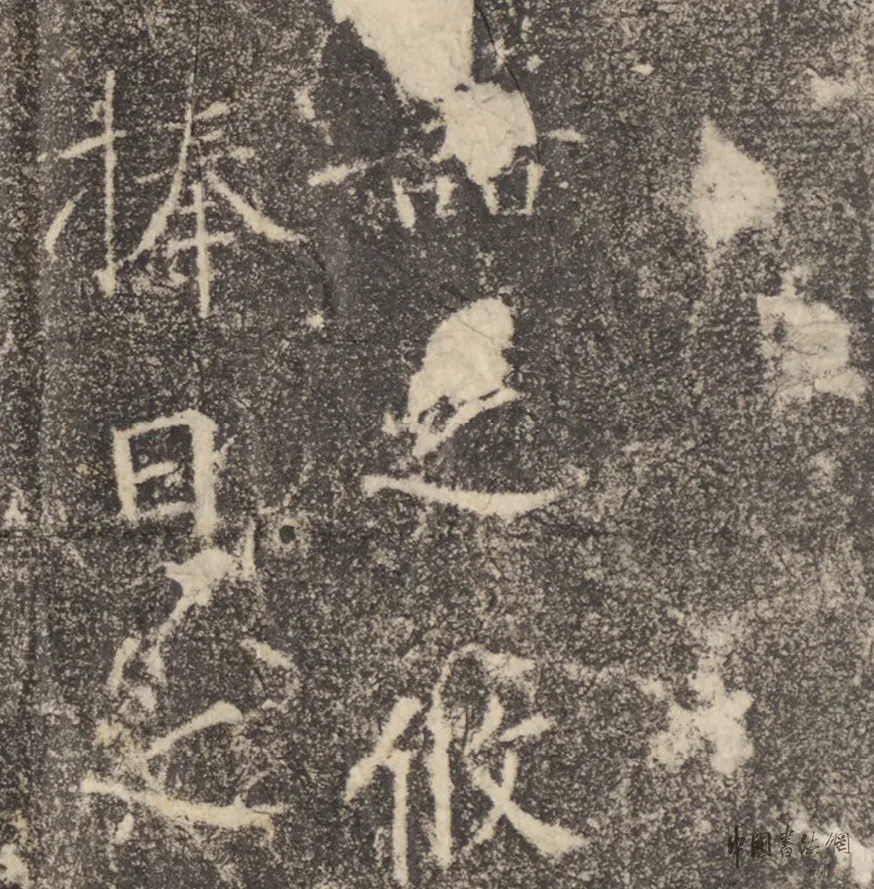 之攸
捧日之
中國書法網